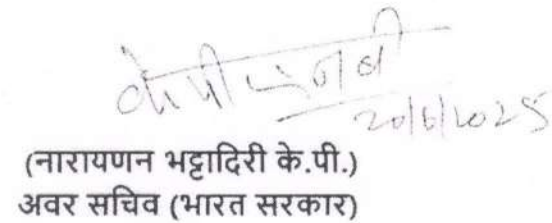 20/6/2025
(नारायणन भट्टादिरी के.पी.)
अवर सचिव (भारत सरकार)